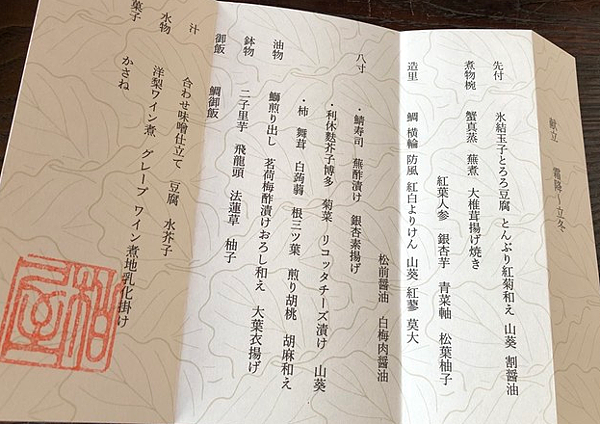 献立 霜降～立冬
先付 氷結玉子とろろ豆腐 とんぶり紅菊和え 山葵 割醤油
煮物椀 蟹真蒸 蕪煮 大椎茸揚げ焼き
紅葉人参 銀杏芋 青菜軸 松葉柚子
造里 鯛 横輪 防風 紅白よりけん 山葵 紅蓼 莫大
松前醤油 白梅肉醤油
八寸 ・鯖寿司 蕪酢漬け 銀杏素揚げ
・利休麩芥子博多 菊菜 リコッタチーズ漬け 山葵
・柿 舞茸 白蒟蒻 根三ツ葉 煎り胡桃 胡麻和え
油物 鰤煎り出し 茗荷梅酢漬けおろし和え 大葉衣揚げ
鉢物 二子里芋 飛龍頭 法蓮草 柚子
御飯 鯛御飯
汁 合わせ味噌仕立て 豆腐 水芥子
水物 洋梨ワイン煮 グレープワイン煮地乳化掛け
菓子 かさね